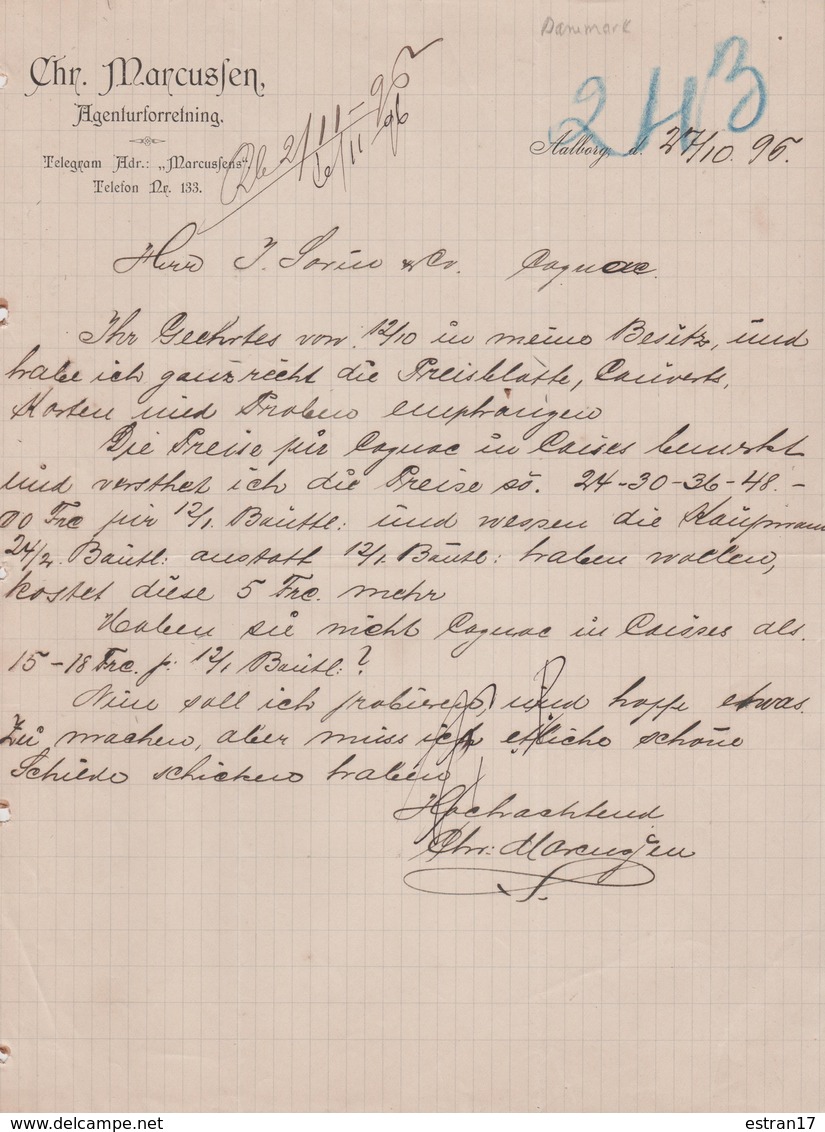 Danemark
243
Chr. Marcusſen,
Agenturforretning.
Telegram Adr.: „Marcusſens“
Telefon Nr. 133.
2/11 - 96
6/11 96
Aalborg, d. 27/10. 96.
Herr J. Sorin & Co. Cognac.
Ihr Geehrtes von 12/10 in meine Besitz, und
habe ich ganz recht die Preisblatte, Couverts,
Korten und Proben empfrangen
Die Preise für Cognac in Caises bemerkt
und versthet ich die Preise so. 24-30-36-48.-
00 Frc für 12/1. Boutl: und wessen die Kaufmann
24/2. Boutl: anstatt 12/1. Boutl: haben wollen,
kostet diese 5 Frc. mehr
Haben sie nicht Cognac in Caisses als.
15-18 Frc. p: 12/1 Boutl:?
Nun soll ich probieren, und hoffe etwas.
Zu machen, aber muss ich etliche schöne
Schilde schicken haben
Hochachtend
Chr: Marcussen
delcampe.net
estran17